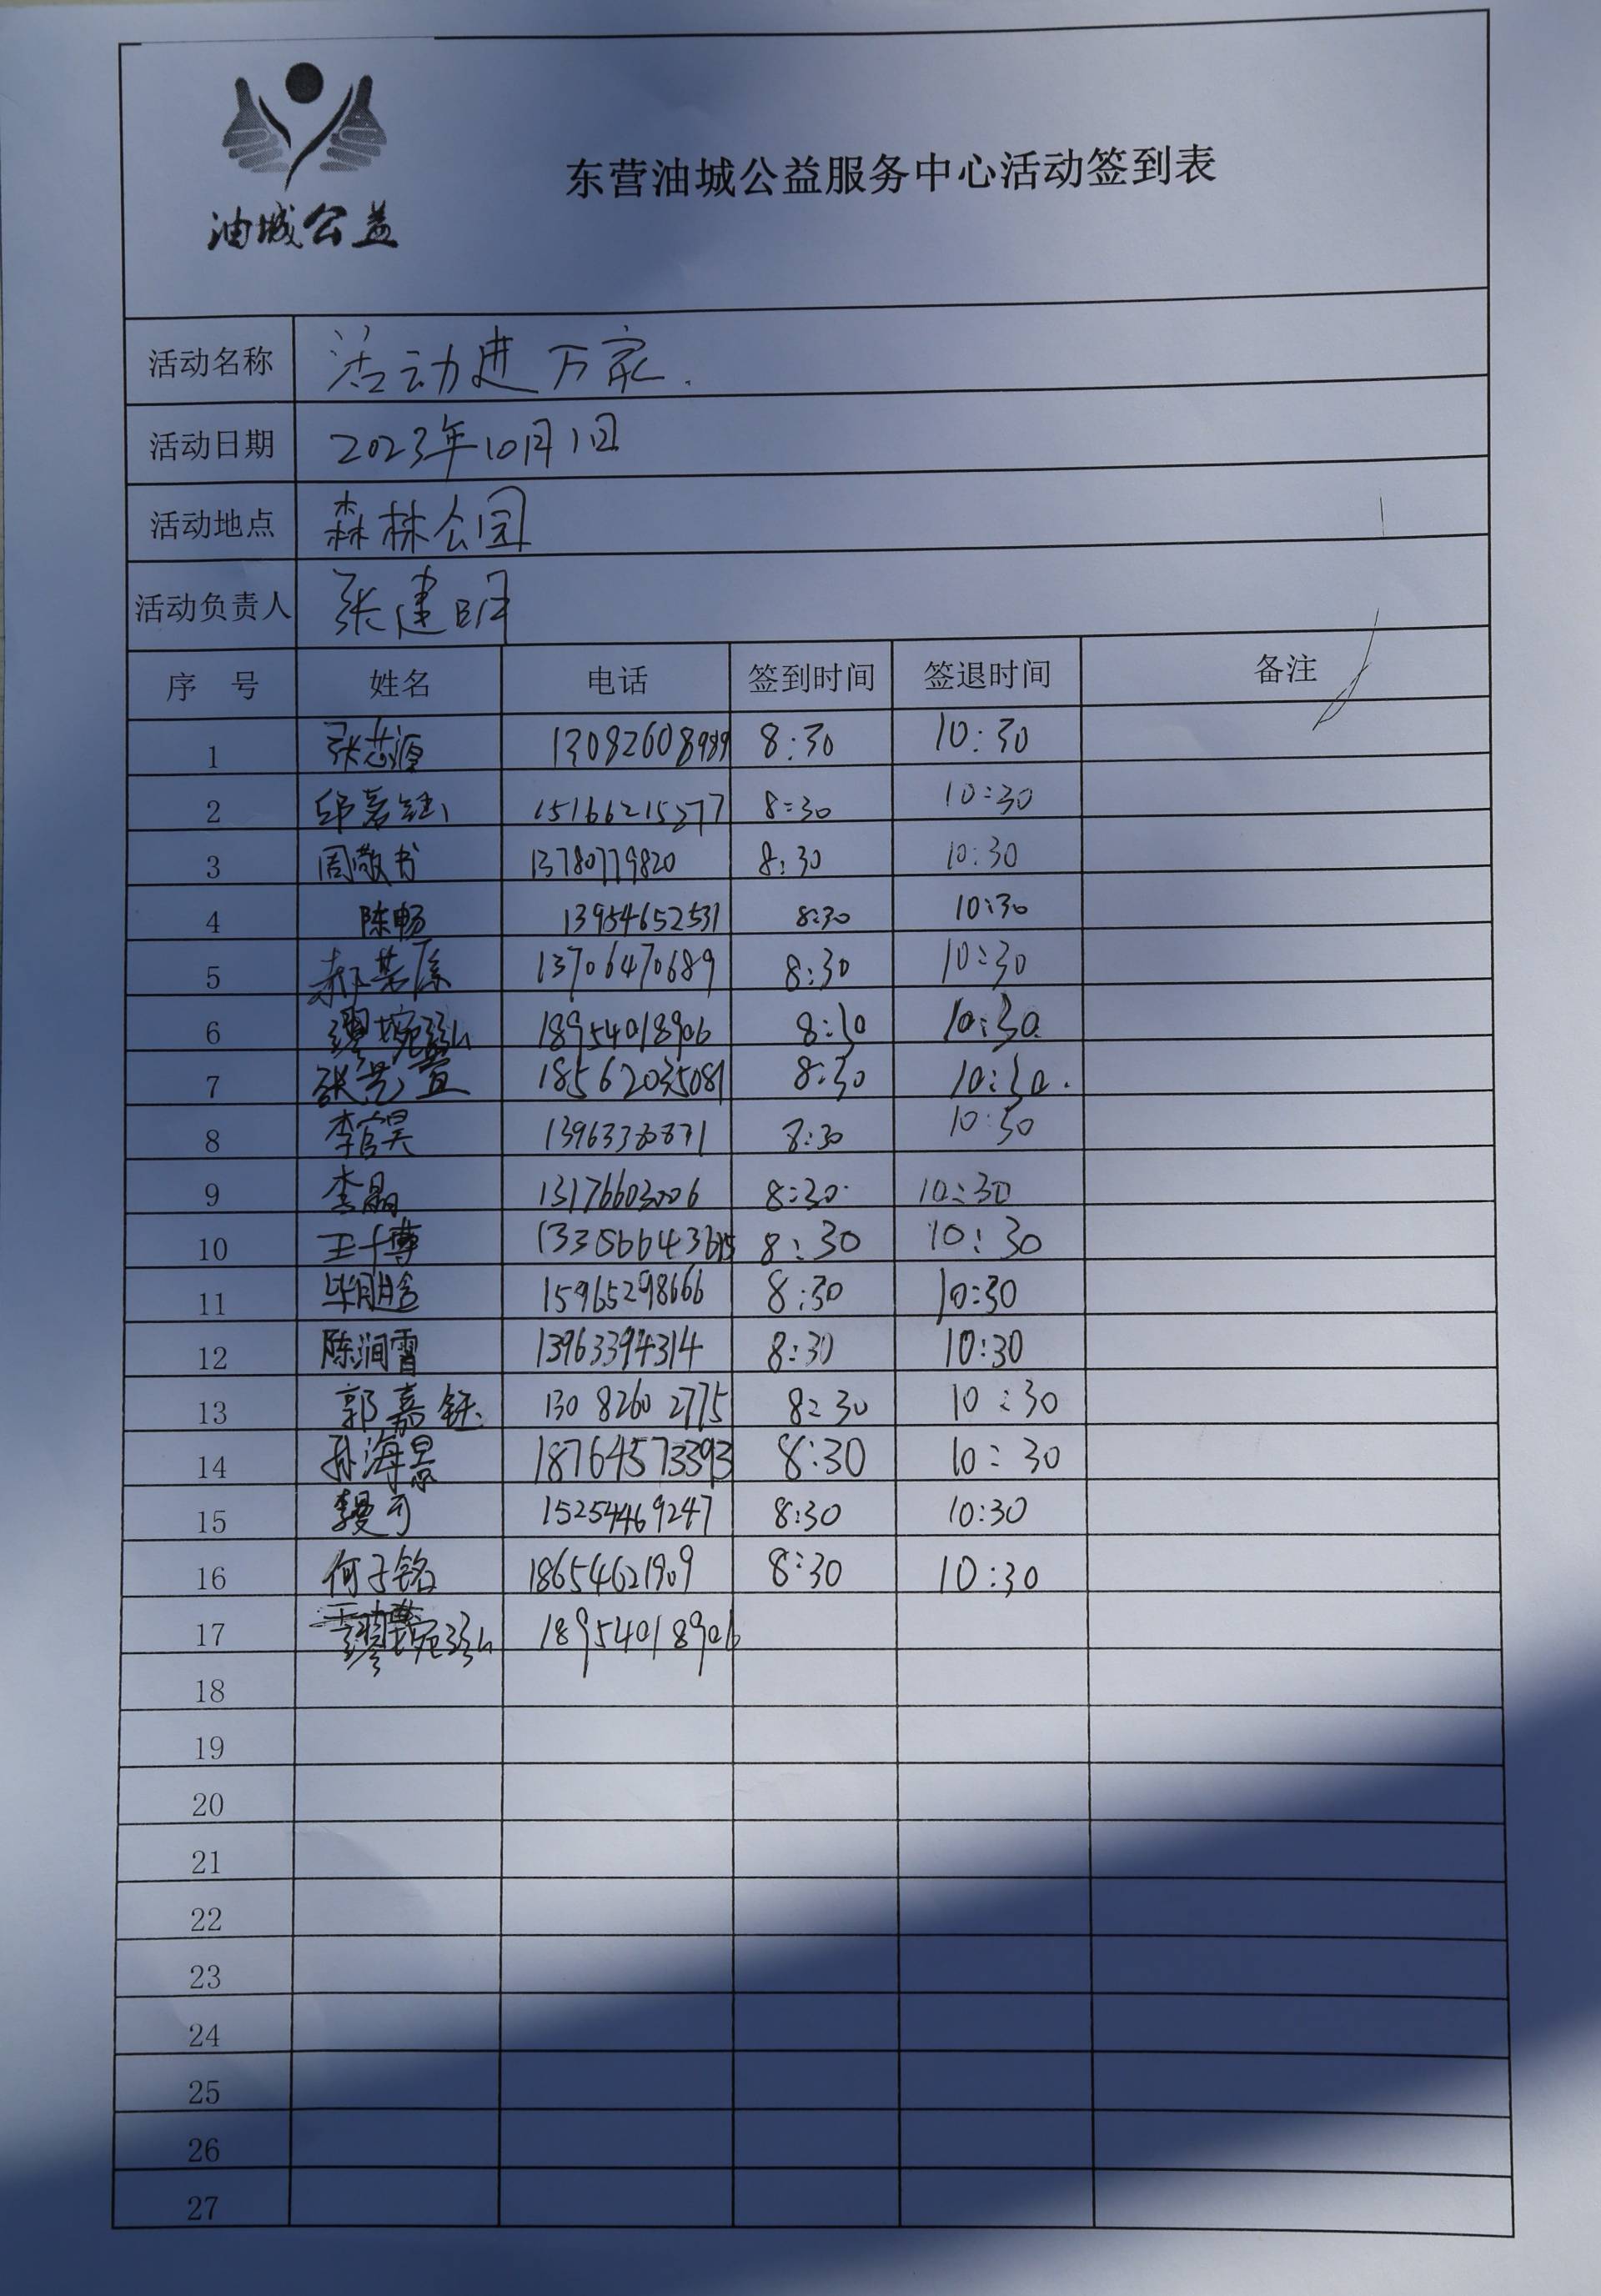 油城公益
东营油城公益服务中心活动签到表
活动名称 活动进万家.
活动日期 2023年10月1日
活动地点 森林公园
活动负责人 张建明
序 号 姓名 电话 签到时间 签退时间 备注
1 张芯源 13082608989 8:30 10:30
2 邱嘉钰 15166215277 8:30 10:30
3 周敬书 13780779820 8:30 10:30
4 陈畅 13954652531 8:30 10:30
5 13706470689 8:30 10:30
6 18954018906 8:30 10:30
7 张艺萱 18562035081 8:30 10:30.
8 李官昊 8:30 10:30
9 李晶 13176603006 8:30 10:30
10 王博 8:30 10:30
11 15965298666 8:30 10:30
12 陈润霄 13963394314 8:30 10:30
13 郭嘉钰 130 8260 2775 8:30 10:30
14 孙海景 18764573393 8:30 10:30
15 15254469247 8:30 10:30
16 何子铭 18654621909 8:30 10:30
17 18954018906
18
19
20
21
22
23
24
25
26
27